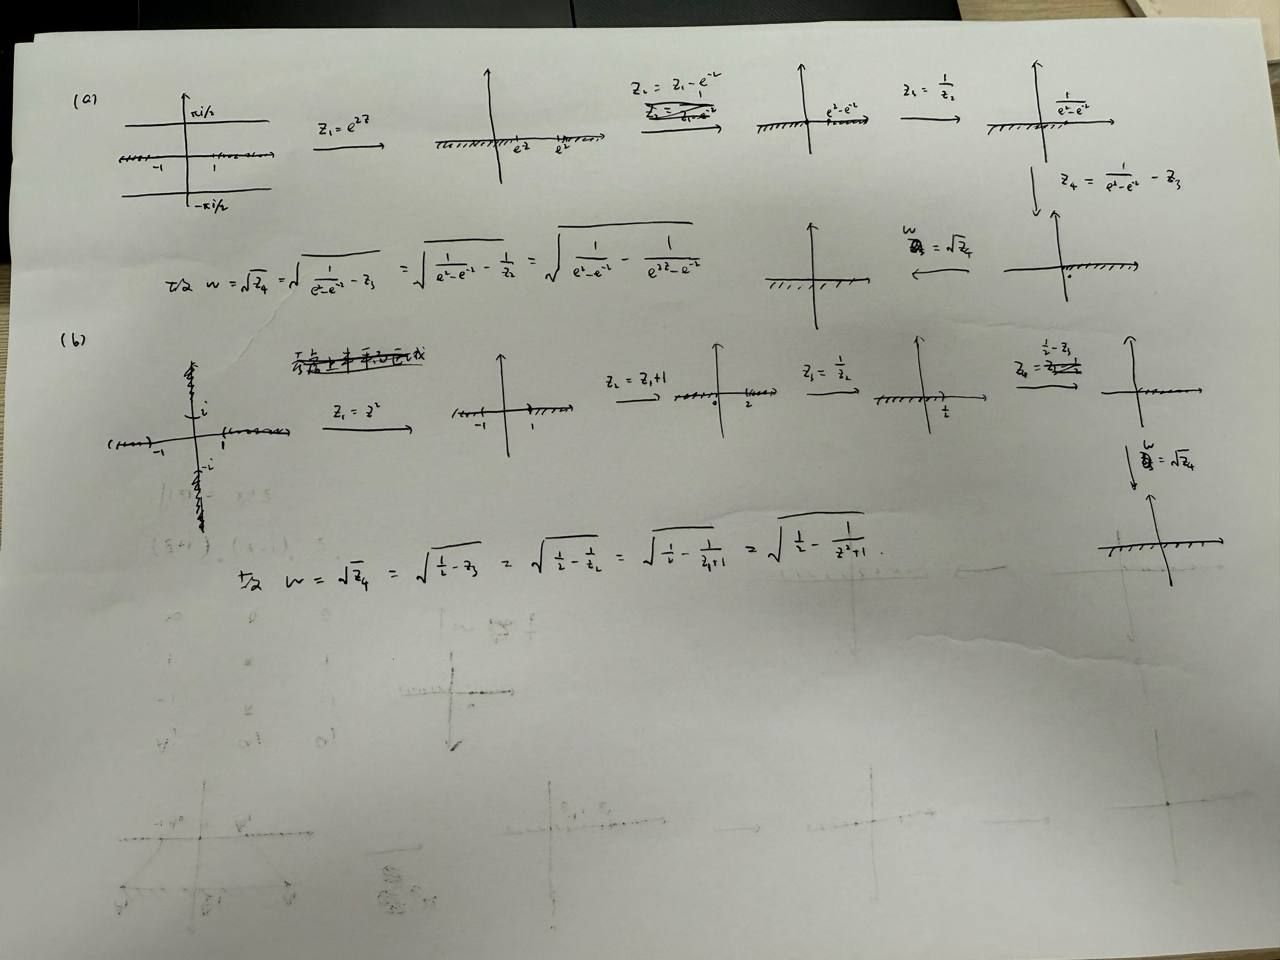 (a)
πi/2
-1
1
-πi/2
z₁ = e^{2z}
e²
z₂ = z₁ - e^{-2}
e²-e^{-2}
z₃ = 1/z₂
1/(e²-e^{-2})
z₄ = 1/(e²-e^{-2}) - z₃
w = √z₄
w = √z₄ = √(1/(e²-e^{-2}) - z₃) = √(1/(e²-e^{-2}) - 1/z₂) = √(1/(e²-e^{-2}) - 1/(e^{2z}-e^{-2}))
(b)
i
-1
1
-i
z₁ = z²
-1
1
z₂ = z₁+1
2
z₃ = 1/z₂
1/2
z₄ = 1/2 - z₃
w = √z₄
w = √z₄ = √(1/2 - z₃) = √(1/2 - 1/z₂) = √(1/2 - 1/(z₁+1)) = √(1/2 - 1/(z²+1)).